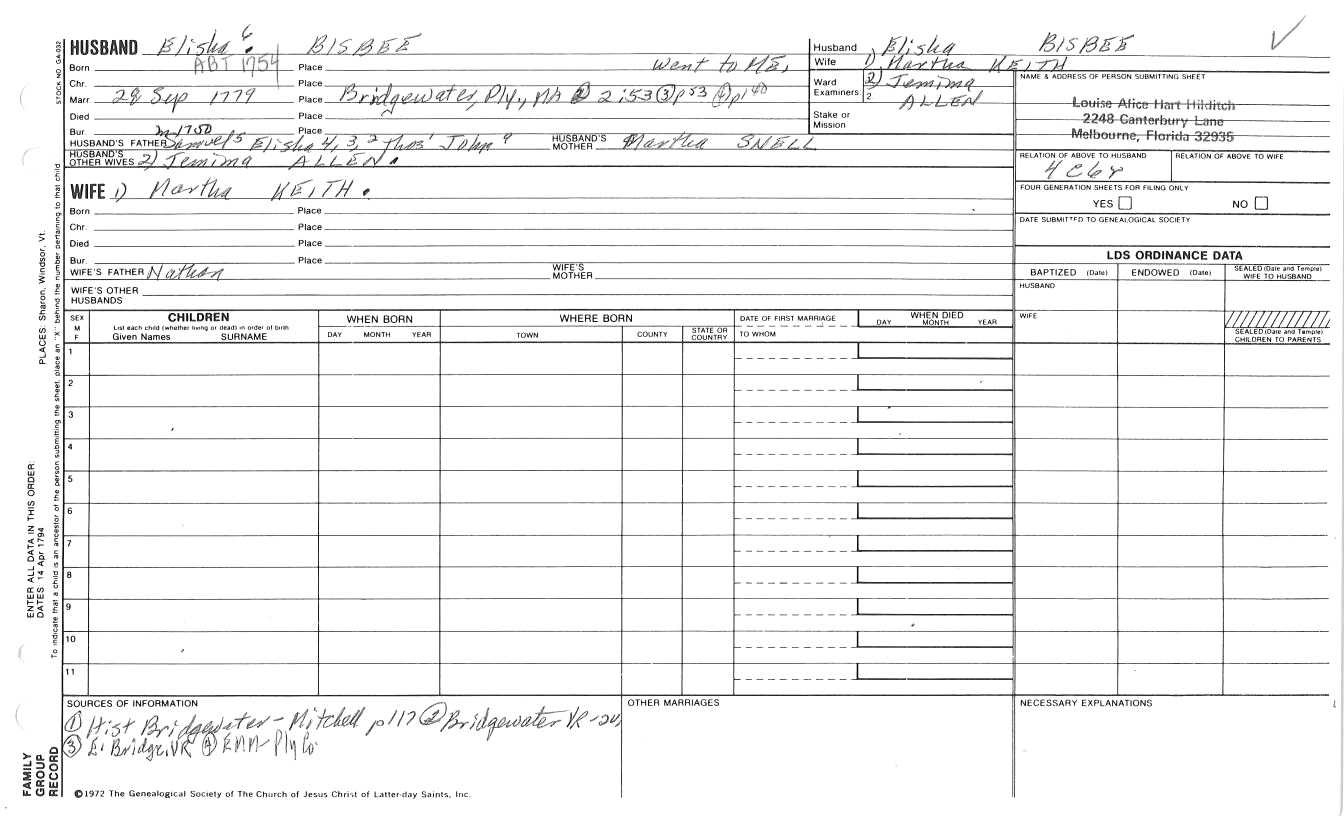 HUSBAND Elisha 6 BISBEE
Born ABT 1754 Place went to ME,
Chr. Place
Marr 28 Sep 1779 Place Bridgewater, Ply, MA ② 2:53 ③ p53 ④ p140
Died Place
Bur. m 1750 Place
HUSBAND'S FATHER Samuel 5 Elisha 4, 3, 2 Thos' John HUSBAND'S MOTHER Martha SNELL
HUSBAND'S OTHER WIVES 2) Jemima ALLEN.
WIFE 1) Martha KEITH.
Born Place
Chr. Place
Died Place
Bur. Place
WIFE'S FATHER Nathan WIFE'S MOTHER
WIFE'S OTHER HUSBANDS
Husband Elisha BISBEE
Wife 1) Martha KEITH
Ward Examiners 1 2) Jemima
2 ALLEN
Stake or Mission
NAME & ADDRESS OF PERSON SUBMITTING SHEET
Louise Alice Hart Hilditch
2248 Canterbury Lane
Melbourne, Florida 32935
RELATION OF ABOVE TO HUSBAND RELATION OF ABOVE TO WIFE
4C6r
FOUR GENERATION SHEETS FOR FILING ONLY
YES NO
DATE SUBMITTED TO GENEALOGICAL SOCIETY
LDS ORDINANCE DATA
BAPTIZED (Date) ENDOWED (Date) SEALED (Date and Temple) WIFE TO HUSBAND
HUSBAND
WIFE
SEALED (Date and Temple) CHILDREN TO PARENTS
SEX M F CHILDREN WHEN BORN WHERE BORN DATE OF FIRST MARRIAGE WHEN DIED
List each child (whether living or dead) in order of birth
Given Names SURNAME DAY MONTH YEAR TOWN COUNTY STATE OR COUNTRY TO WHOM DAY MONTH YEAR
1
2
3
4
5
6
7
8
9
10
11
SOURCES OF INFORMATION OTHER MARRIAGES NECESSARY EXPLANATIONS
① Hist Bridgewater - Mitchell p117 ② Bridgewater VR-
③ E. Bridge. VR ④ Ply Co
©1972 The Genealogical Society of The Church of Jesus Christ of Latter-day Saints, Inc.
STOCK NO. GA-032
PLACES: Sharon, Windsor, Vt.
ENTER ALL DATA IN THIS ORDER:
DATES: 14 Apr 1794
To indicate that a child is an ancestor of the person submitting the sheet, place an "X" behind the number pertaining to that child
FAMILY
GROUP
RECORD